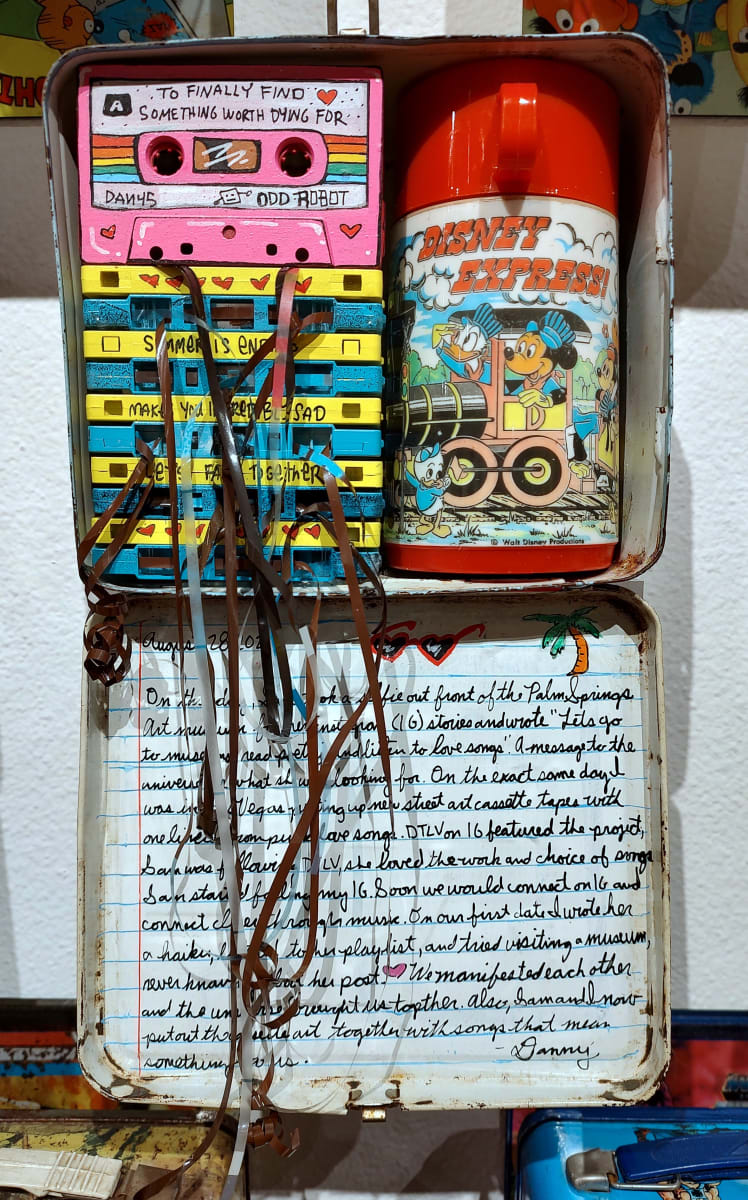 A
TO FINALLY FIND
SOMETHING WORTH DYING FOR
DANYS
ODD ROBOT
DISNEY
EXPRESS!
© Walt Disney Productions
IS
MAKE YOU SAD
FA TOGETHER
28
On ok a out front of the Palm Springs
Art (IG) stories and wrote "Lets go
to read and listen to love songs" A message to the
what looking for. On the exact same day I
was in Vegas up new street art cassette tapes with
love songs. DTLV on IG featured the project,
Sam was she loved the work and choice of songs
Sam my IG. Soon we would connect on IG and
connect through music. On our first date I wrote her
a haiku, to her playlist, and tried visiting a museum,
never her post. We manifested each other
and the brought us togther. also, Sam and I now
put out art together with songs that mean
something
- Danny